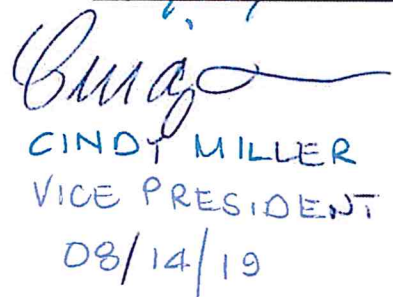 CINDY MILLER
VICE PRESIDENT
08/14/19